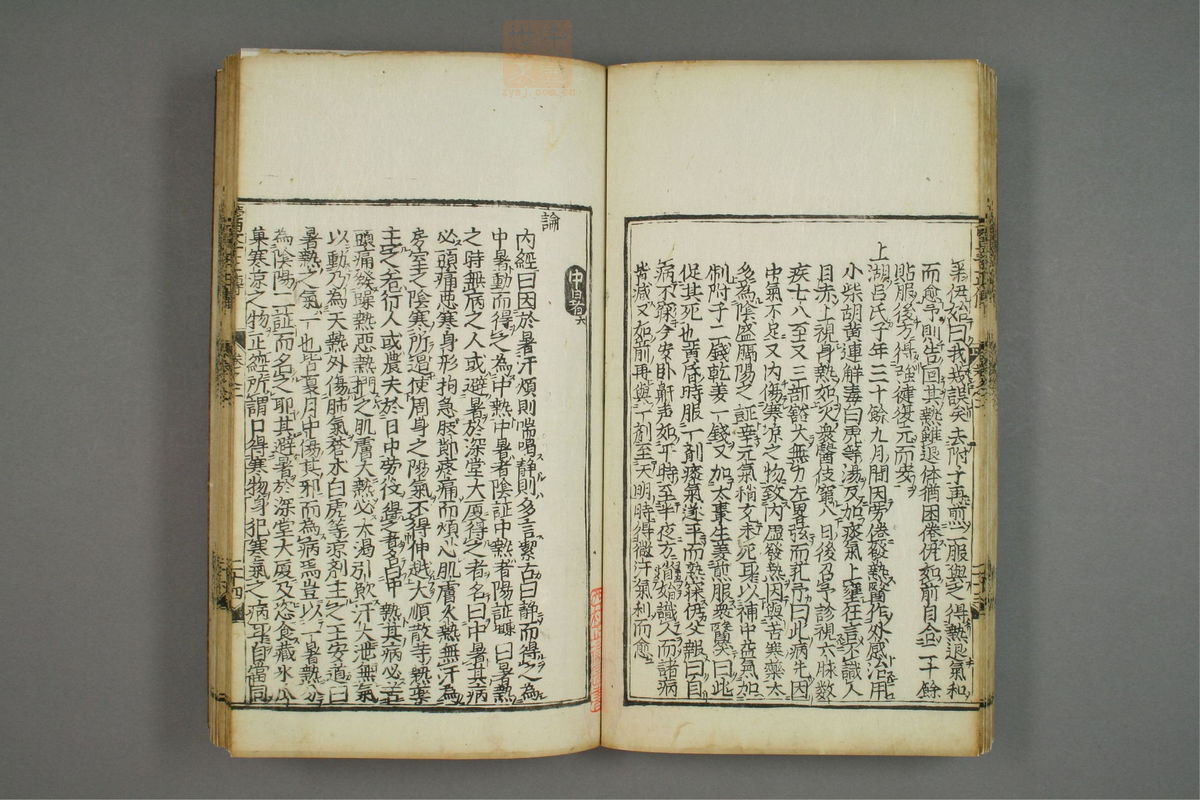 弟伊芳曰我哉誤矣去附子再煎一服與之得熱退氣和
而愈予則告回其熱雖退体猶困倦伊如前自合二十餘
貼服後方得強健復元而安
上湖呂氏子年三十餘九月間因劳倦發熱醫作外感治用
小柴胡黄連解毒白虎等湯反加痰氣上壅狂言不識人
目赤上視身熱如火衆醫伎窮八日後召予診視六脉數
疾七八至又三部豁大無力左畧弦而芤予曰此病先因
中氣不足又内傷寒凉之物致内虚發熱因與苦寒藥太
多為陰盛膈陽之証幸元氣稍文未死耳以補中益氣加
制附子二錢乾姜一錢又加大棗生姜煎服衆醫笑曰此
促其死也黄昏時服一劑痰氣遂平而熱𥧌伊父報曰自
病不𥧌今安卧鼾声如平時至半夜方揩始識人而諸病
皆减又如前再與一劑至天明時得微汗氣利而愈
中暑六
論
内經曰因於暑汗煩則喘喝静則多言絜古曰静而得之為
中暑動而得之為中熱中暑者陰証中熱者陽証 曰暑熱
之時無病之人人或避暑於深堂大厦得之者名曰中暑其病
必頭痛悪寒身形拘急肢節疼痛而煩心肌膚火熱無汗為
房室之陰寒所遏使周身之陽氣不得伸越大順散等熱藥
主之若行人或農夫於日中劳役得之者名曰中熱其病必苦
頭痛發躁熱悪熱捫之肌膚大熱必大渇引飲汗大泄無氣
以動乃為天熱外傷肺氣蒼术白虎等凉剤主之王安道曰
暑熱之氣一也皆夏月中傷其邪而為病焉豈以一暑熱分
為陰陽二証而名之耶其避暑於深堂大厦及恣食藏氷瓜
菓寒凉之物正經所謂口得寒物身犯寒氣之病耳自當同
卷之二
二十四
zysj.com.cn